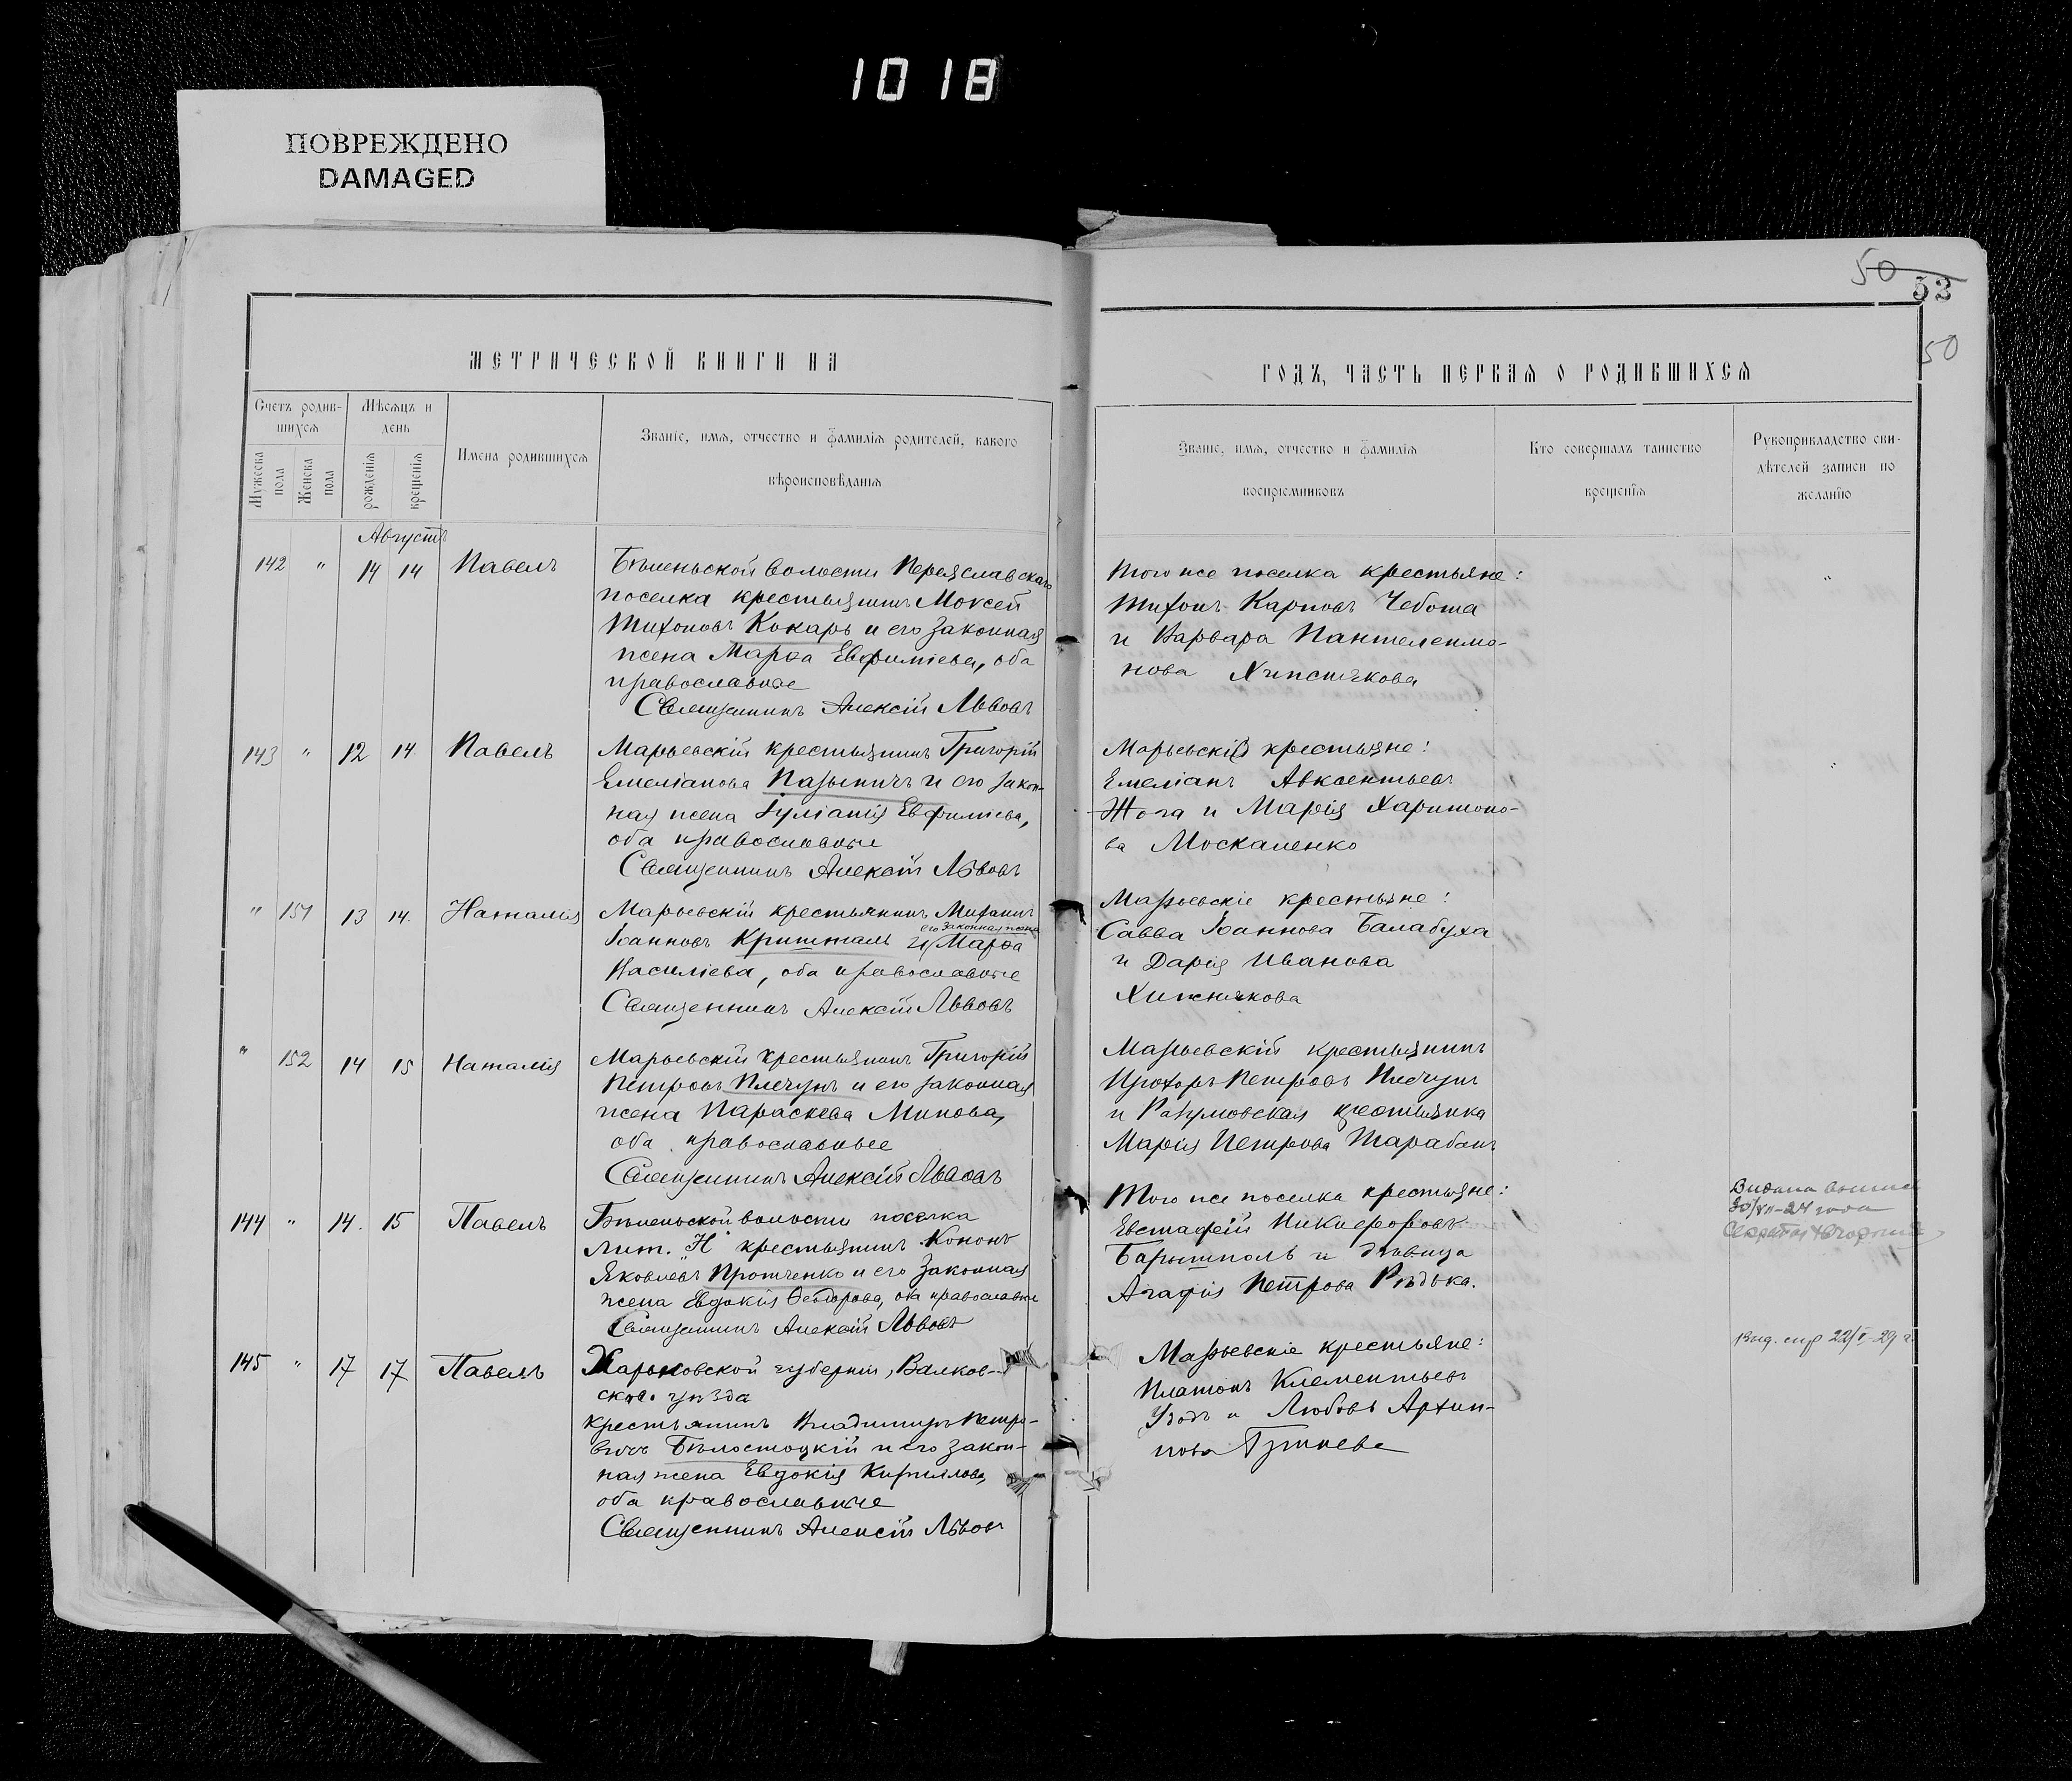 1018
ПОВРЕЖДЕНО
DAMAGED
50
53
50
МЕТРИЧЕСКОЙ КНИГИ НА
ГОДЪ, ЧАСТЬ ПЕРВАЯ О РОДИВШИХСЯ
Счетъ родив-
шихся
Мужеска пола
Женска пола
Мѣсяцъ и день
рожденія
крещенія
Имена родившихся
Званіе, имя, отчество и фамилія родителей, какого
вѣроисповѣданія
Званіе, имя, отчество и фамилія
воспріемниковъ
Кто совершалъ таинство
крещенія
Рукоприкладство сви-
дѣтелей записи по
желанію
Августъ
142 " 14 14 Павелъ
Бѣленьской волости Переяславскаго
поселка крестьянинъ Моѵсей
Тихоновъ Кокарь и его законная
жена Марѳа Евфиміева, оба
православные
Священникъ Алексій Львовъ
Того же поселка крестьяне:
Тихонъ Карповъ Чебота
и Варвара Пантелеимо-
нова Хижнякова
143 " 12 14 Павелъ
Марьевскій крестьянинъ Григорій
Емеліанова и его закон-
ная жена Іуліанія Евфиміева,
оба православные
Священникъ Алексій Львовъ
крестьяне:
Емеліанъ Авксентьевъ
Жога и Марія Харитоно-
ва Москаленко
" 151 13 14 Наталія
Марьевскій крестьянинъ Михаилъ
его законная жена
Іоанновъ Кришталь и Марѳа
Василіева, оба православные
Священникъ Алексій Львовъ
Марьевскіе крестьяне:
Савва Іоаннова Балабуха
и Дарія Иванова
Хижнякова
" 152 14 15 Наталія
Марьевскій крестьянинъ Григорій
Петровъ Плечунъ и его законная
жена Параскева Минова,
оба православные
Священникъ Алексій Львовъ
Марьевскій крестьянинъ
Прохоръ Петровъ Плечунъ
и Разумовская крестьянка
Марія Петрова Тарабанъ
144 " 14 15 Павелъ
Бѣленьской волости поселка
Лит. "Н" крестьянинъ Кононъ
Яковлевъ Протченко и его законная
жена Евдокія Ѳеодорова, оба православные
Священникъ Алексій Львовъ
Того же поселка крестьяне:
Евстафій Никифоровъ
Барышполь и дѣвица
Агафія Петрова Рѣдька.
Видана
24 года
145 " 17 17 Павелъ
Харьковской губерніи, Валков-
скаго уѣзда
крестьянинъ Владимиръ Петро-
вичъ Бѣлостоцкій и его закон-
ная жена Евдокія Кириллова,
оба православные
Священникъ Алексій Львовъ
Марьевскіе крестьяне:
Платонъ Климентьевъ
и Любовь Архип-
пова